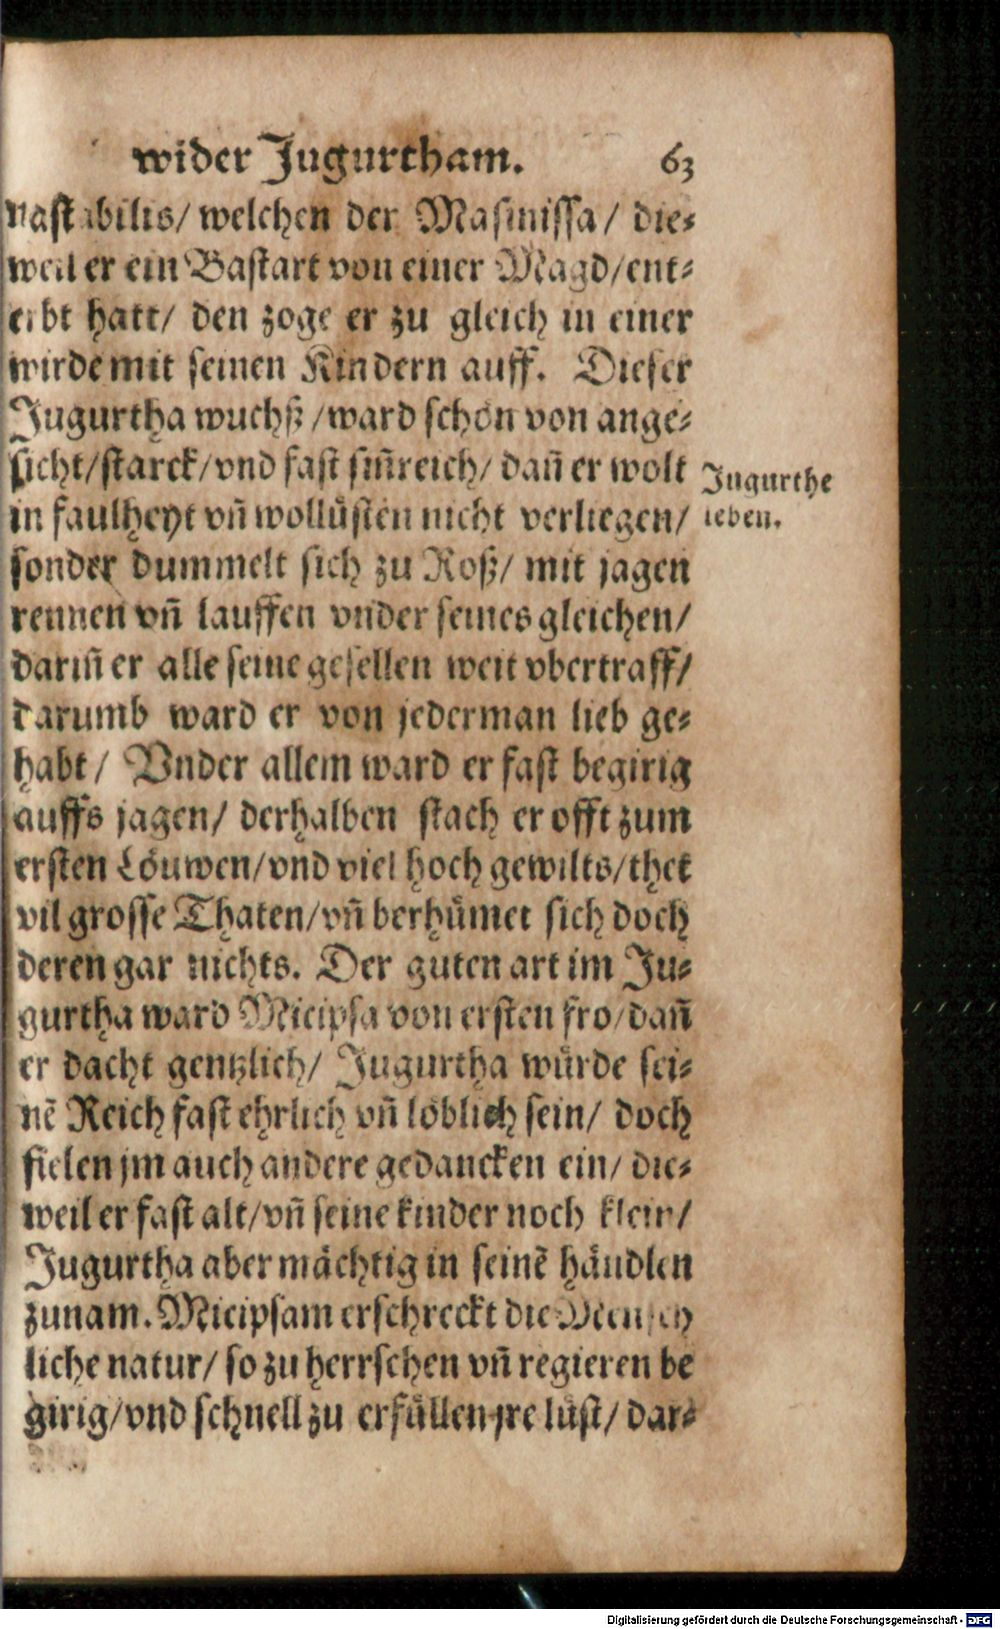 wider Jugurtham. 63
nastabilis/ welchen der Masinissa/ die⸗
weil er ein Bastart von einer Magd/ent⸗
erbt hatt/ den zoge er zu gleich in einer
wirde mit seinen Kindern auff. Dieser
Jugurtha wuchß/ward schön von ange⸗
sicht/starck/vnd fast siñreich/ dañ er wolt
in faulheyt vñ wollüsten nicht verliegen/
sonder dummelt sich zu Roß/ mit jagen
rennen vñ lauffen vnder seines gleichen/
dariñ er alle seine gesellen weit vbertraff/
darumb ward er von jederman lieb ge⸗
habt/ Vnder allem ward er fast begirig
auffs jagen/ derhalben stach er offt zum
ersten Löuwen/vnd viel hoch gewilts/thet
vil grosse Thaten/vñ berhümet sich doch
deren gar nichts. Der guten art im Ju⸗
gurtha ward Micipsa von ersten fro/dañ
er dacht gentzlich/ Jugurtha würde sei⸗
nē Reich fast ehrlich vñ löblich sein/ doch
fielen jm auch andere gedancken ein/ die⸗
weil er fast alt/vñ seine kinder noch klein/
Jugurtha aber mächtig in seinē händlen
zunam. Micipsam erschreckt die Mensch
liche natur/ so zu herrschen vñ regieren be
girig/vnd schnell zu erfüllen jre lüst/ dar⸗
Jugurthe
leben.
Digitalisierung gefördert durch die Deutsche Forschungsgemeinschaft - DFG